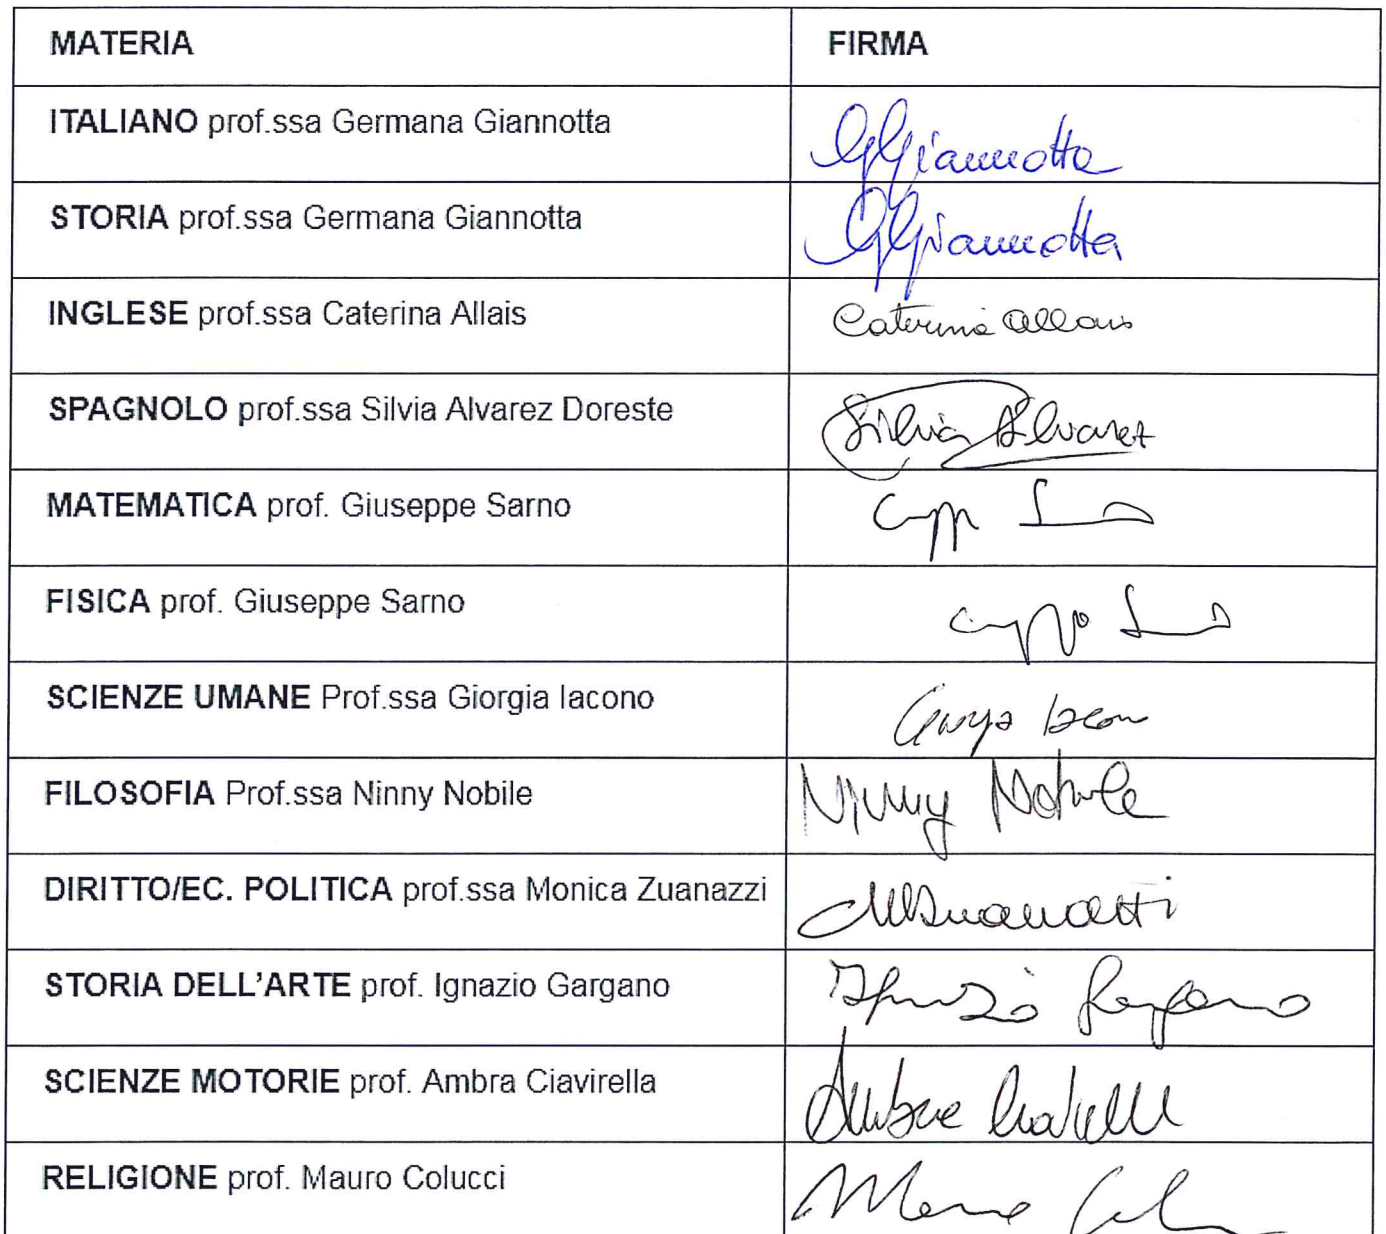 MATERIA FIRMA
ITALIANO prof.ssa Germana Giannotta GGiannotta
STORIA prof.ssa Germana Giannotta GGiannotta
INGLESE prof.ssa Caterina Allais Caterina Allais
SPAGNOLO prof.ssa Silvia Alvarez Doreste Silvia Alvarez
MATEMATICA prof. Giuseppe Sarno
FISICA prof. Giuseppe Sarno
SCIENZE UMANE Prof.ssa Giorgia Iacono
FILOSOFIA Prof.ssa Ninny Nobile Ninny Nobile
DIRITTO/EC. POLITICA prof.ssa Monica Zuanazzi
STORIA DELL'ARTE prof. Ignazio Gargano
SCIENZE MOTORIE prof. Ambra Ciavirella
RELIGIONE prof. Mauro Colucci